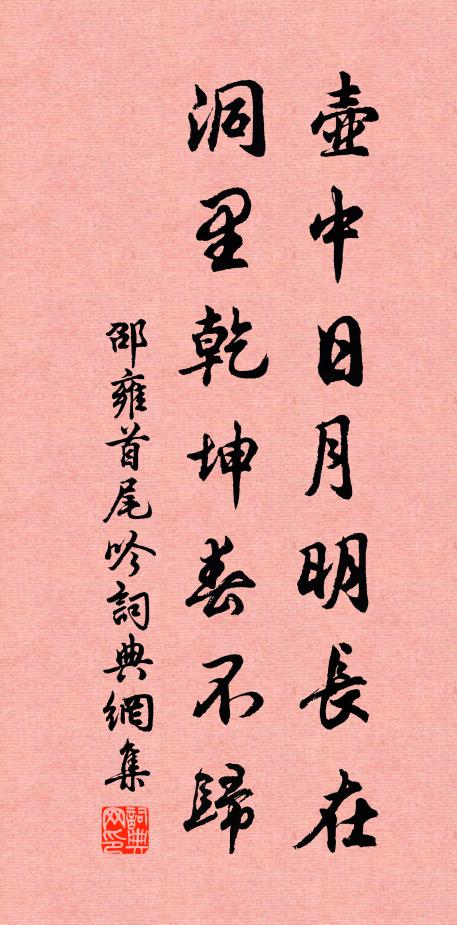 壺中日月明長在
洞里乾坤春不歸
邵雍首尾吟詞典網集
詞典网印